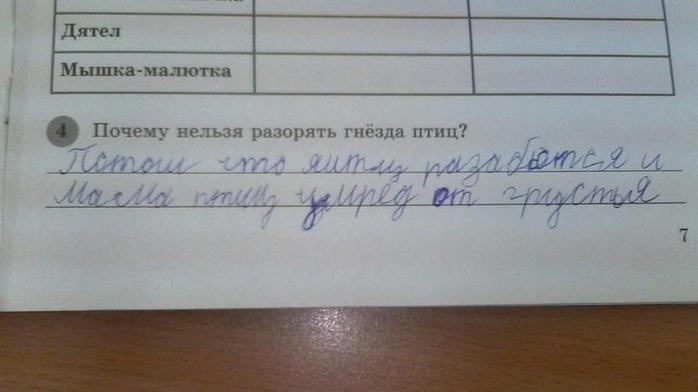 Дятел
Мышка-малютка
4 Почему нельзя разорять гнёзда птиц?
Потом что яитц разабются и
Масма птиц умред от грустья
7